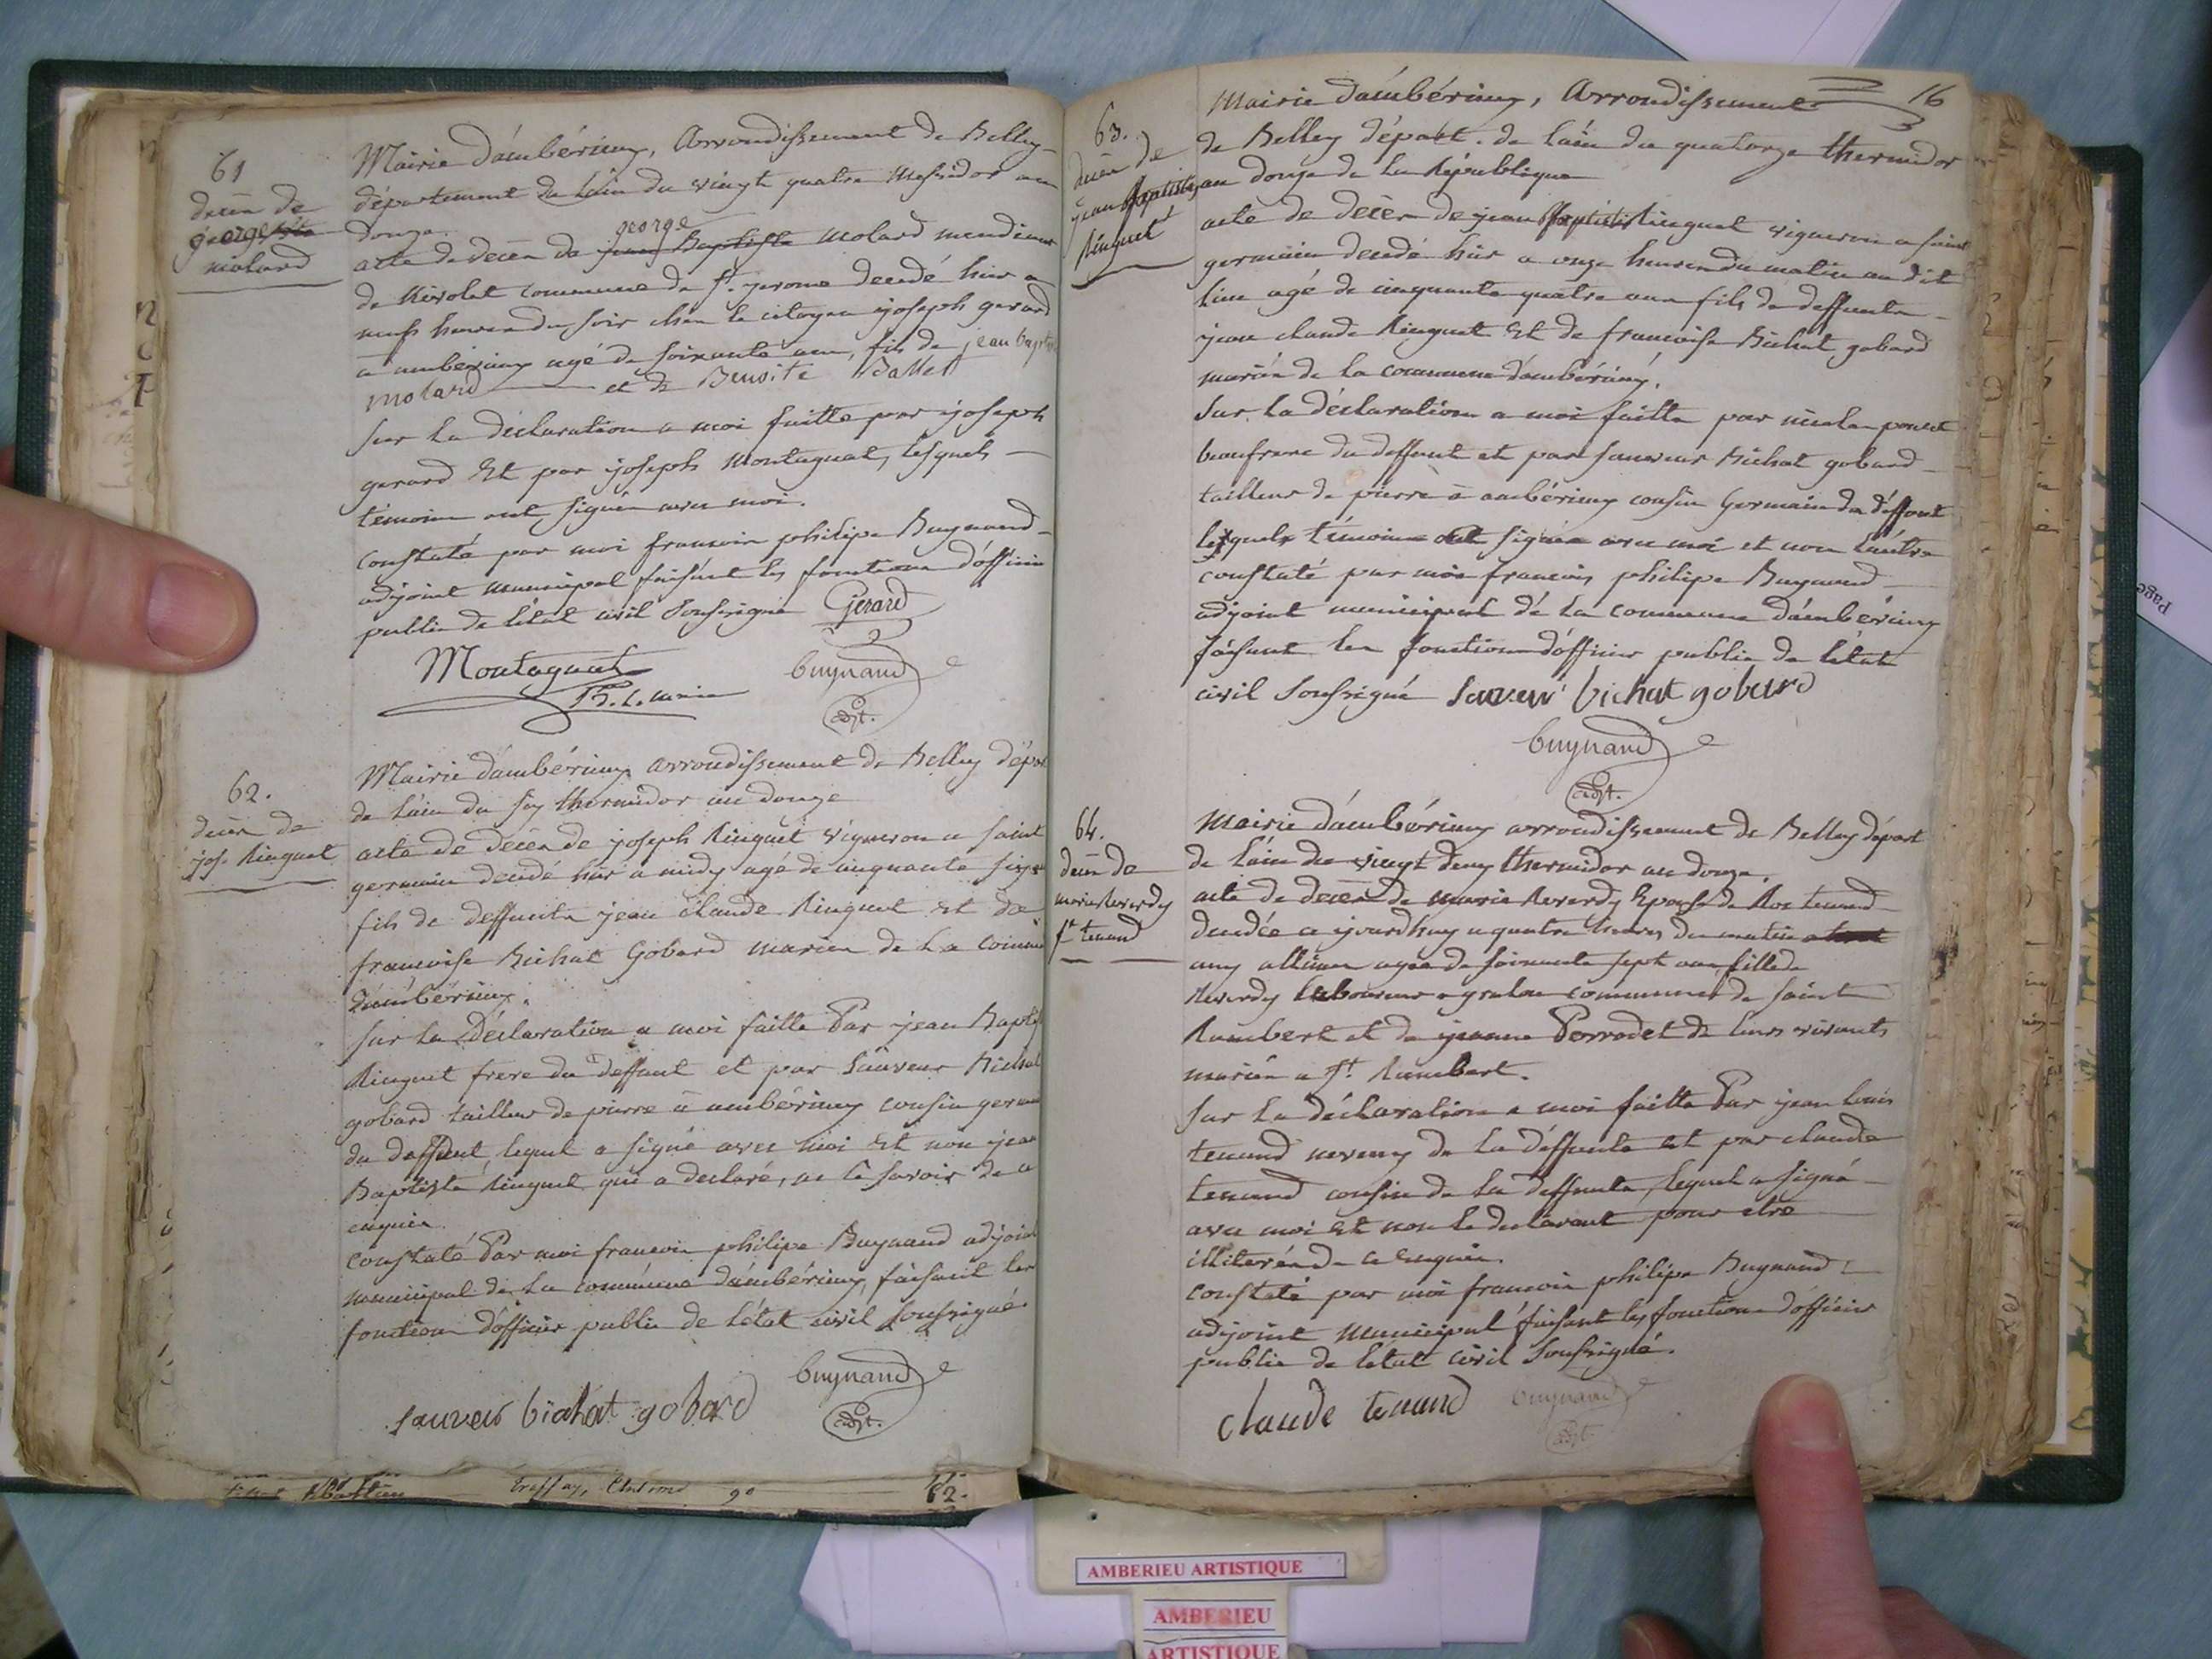 61
decès de
george
molard
Mairie d'ambérieux, Arrondissement de Belley
département de l'ain du vingt quatre Messidor an
douze.
george
acte de decès de jean Baptiste molard mendiant
de Rivolet commune de St. jerome decedé hier a
neuf heures du soir chez le citoyen joseph gerard
a ambérieux agé de soixante ans, fils de jean bapt
molard et de Benoite Ballet
sur la déclaration a moi faitte par joseph
gerard Et par joseph Montagnat, lesquels
temoins ont signés avec moi.
constaté par moi francois philipe Buynand
adjoint municipal faisant les fonctions d'officier
public de l'état civil soussigné Gerard
Montagnat
buynand
adjt.
62.
decès de
jos. Ringuet
Mairie d'ambérieux arrondissement de Belley dépa
de l'ain du six thermidor an douze
acte de decès de joseph Ringuet vigneron a saint
germain decedé hier a midy agé de cinquante six
fils de deffunts jean claude Ringuet Et de
francoise Bichat Gobard mariés de la commu
d'ambérieux.
sur la Déclaration a moi faitte Par jean Bapt
Ringuet frere du deffunt et par Sauveur Bichat
gobard tailleur de pierre a ambérieux cousin germ
du deffunt lequel a signé avec moi Et non jean
Baptiste Ringuet qui a declaré, ne le savoir de ce
enquis.
constaté Par moi francois philipe Buynand adjoint
municipal de la commune d'ambérieux, faisant les
fonctions d'officier public de l'état civil soussigné
buynand
sauveur bichat gobard
adjt.
62.
16
63.
decès de
jean Baptiste
Ringuet
Mairie d'ambérieux, Arrondissement
de Belley départ. de l'ain du quatorze thermidor
an douze de la République
acte de decès de jean Baptiste Ringuet vigneron a saint
germain decedé hier a onze heures du matin au dit
lieu agé de cinquante quatre ans fils de deffunts
jean claude Ringuet Et de francoise Bichat gobard
mariés de la commune d'ambérieux.
sur la déclaration a moi faitte par nicolas
beaufrere du deffunt et par sauveur Bichat gobard
tailleur de pierre a ambérieux cousin Germain du deffunt
lesquels témoins ont signés avec moi et non l'autre
constaté par moi francois philipe Buynand
adjoint municipal de la commune d'ambérieux
faisant les fonctions d'officier public de l'état
civil soussigné Sauveur bichat gobard
buynand
adjt.
64.
decès de
marie Reverdy
fe tenand
Mairie d'ambérieux arrondissement de Belley départ
de l'ain du vingt deux thermidor an douze.
acte de decès de marie Reverdy Epouse de Roc tenand
decedée ce jourdhuy a quatre heures du matin
aux allimes agée de soixante sept ans fille de
Reverdy laboureur a commune de saint
Rambert et de jeanne Perrodet de leurs vivants
mariés a St. Rambert.
sur la déclaration a moi faitte Par jean louis
tenand neveux de la deffunte et par claude
tenand cousin de la deffunte, lequel a signé
avec moi Et non le declarant pour etre
illiteré de ce enquis.
constaté par moi francois philipe Buynand
adjoint Municipal faisant les fonctions d'officier
public de l'état civil soussigné.
claude tenand buynand
adjt.
AMBERIEU ARTISTIQUE
AMBERIEU
ARTISTIQUE
Page